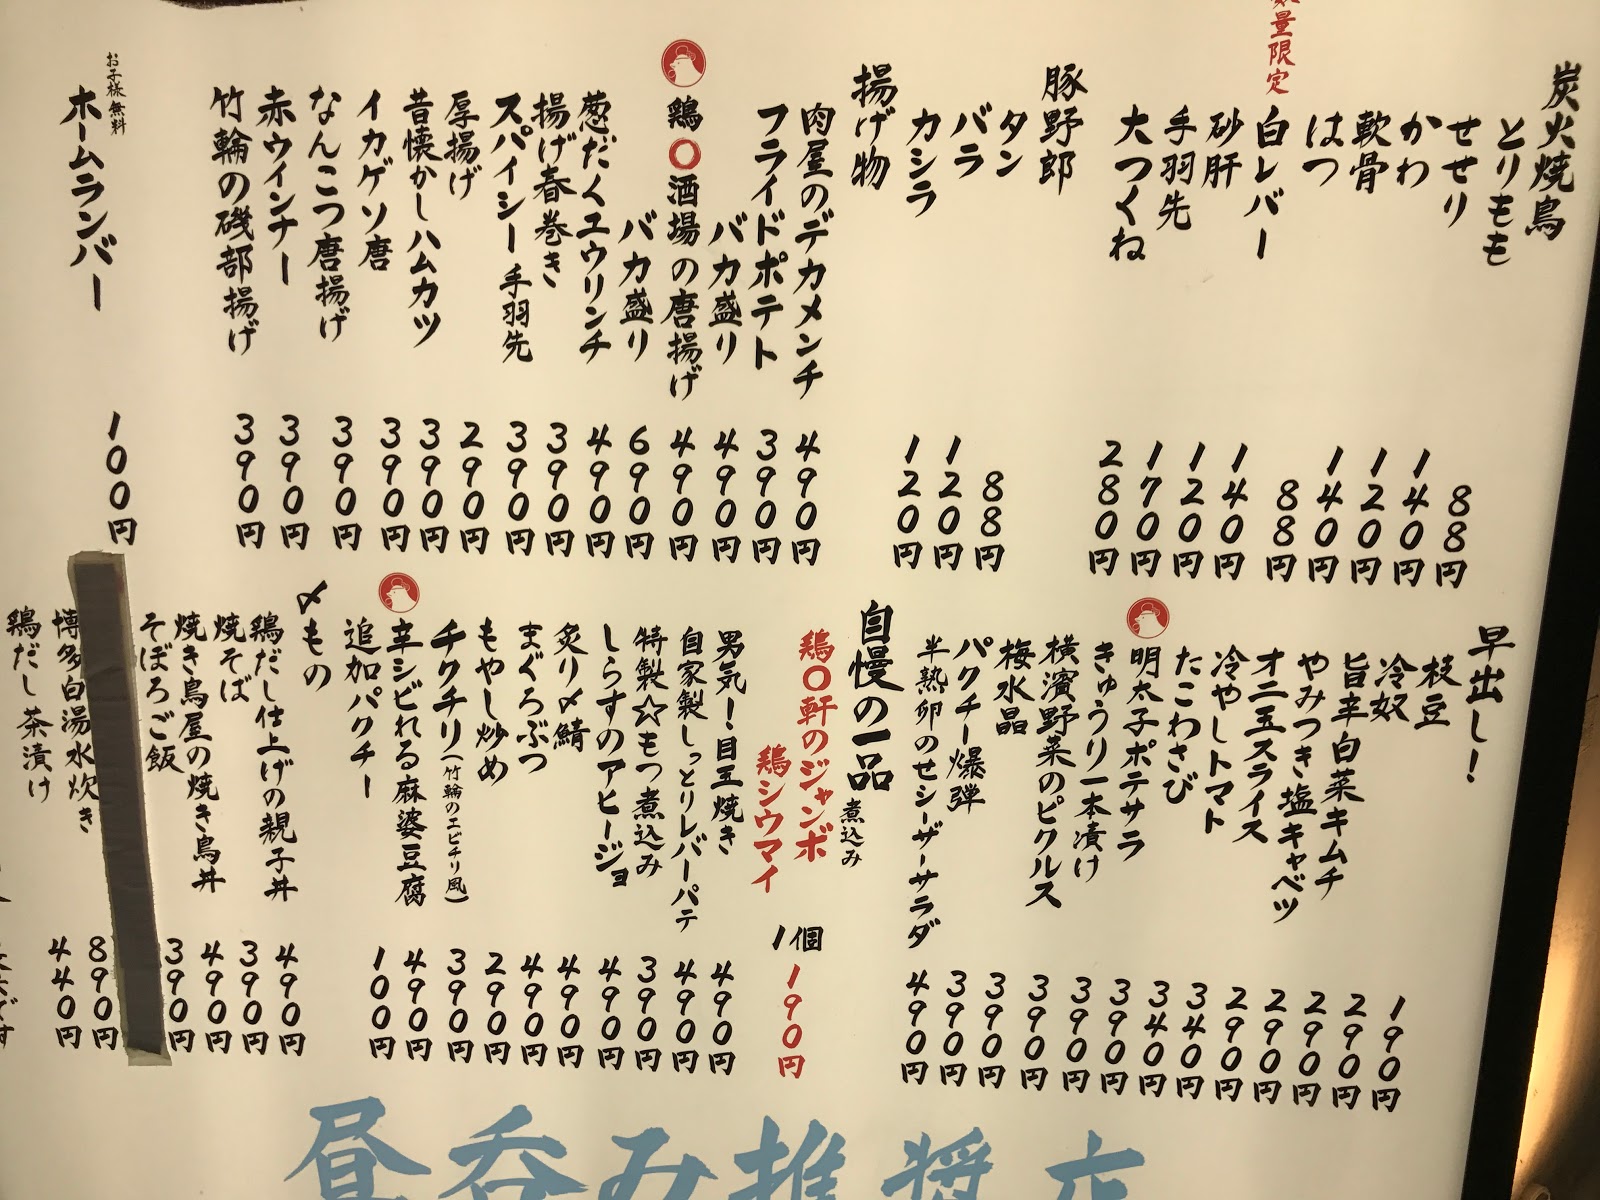 炭火焼鳥
とりもも 88円
せせり 140円
かわ 120円
軟骨 140円
はつ 88円
数量限定 白レバー 140円
砂肝 120円
手羽先 170円
大つくね 280円
豚野郎
タン 88円
バラ 120円
カシラ 120円
揚げ物
肉屋のデカメンチ 490円
フライドポテト 390円
バカ盛り 490円
鶏〇酒場の唐揚げ 490円
バカ盛り 690円
葱だくユウリンチ 490円
揚げ春巻き 390円
スパイシー手羽先 390円
厚揚げ 290円
昔懐かしハムカツ 390円
イカゲソ唐 390円
なんこつ唐揚げ 390円
赤ウインナー 390円
竹輪の磯部揚げ 390円
お子様無料
ホームランバー 100円
早出し!
枝豆 190円
冷奴 290円
旨辛白菜キムチ 290円
やみつき塩キャベツ 290円
オニ玉スライス 290円
冷やしトマト 340円
たこわさび 340円
明太子ポテサラ 390円
きゅうり一本漬け 390円
横濱野菜のピクルス 390円
梅水晶 390円
パクチー爆弾 390円
半熟卵のせシーザーサラダ 490円
自慢の一品 煮込み
鶏〇軒のジャンボ
鶏シウマイ 1個 190円
男気!目玉焼き 490円
自家製しっとりレバーパテ 490円
特製☆もつ煮込み 390円
しらすのアヒージョ 490円
炙り〆鯖 490円
まぐろぶつ 490円
もやし炒め 290円
チクチリ(竹輪のエビチリ風) 390円
辛シビれる麻婆豆腐 490円
追加パクチー 100円
〆もの
鶏だし仕上げの親子丼 490円
焼そば 390円
焼き鳥屋の焼き鳥丼 490円
そぼろご飯 390円
博多白湯水炊き 890円
鶏だし茶漬け 440円
です
昼呑み推奨店